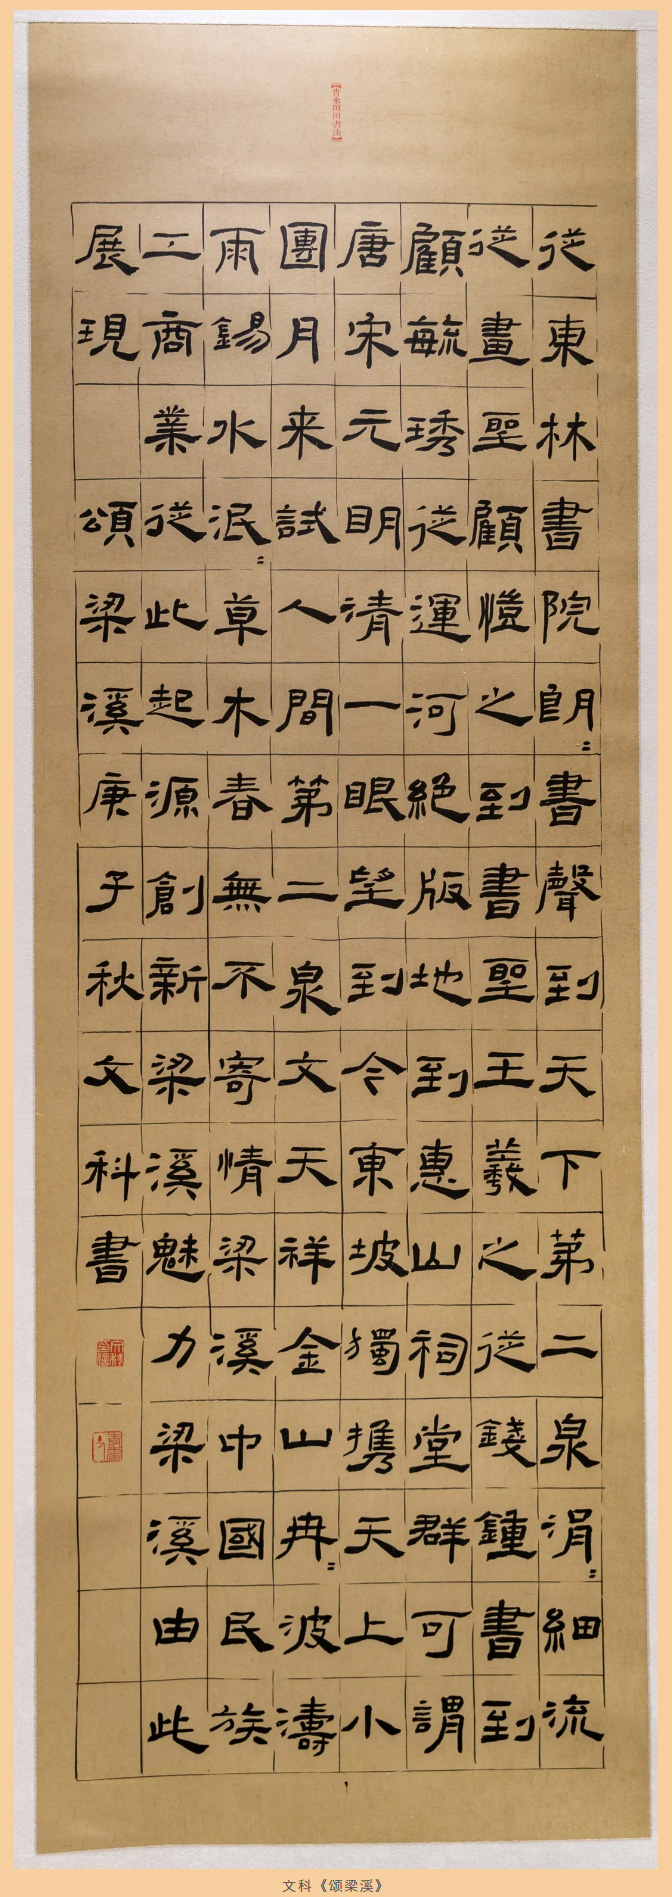 從東林書院朗〻書聲到天下第二泉涓〻細流
從畫聖顧愷之到書聖王羲之從錢鍾書到
顧毓琇從運河絕版地到惠山祠堂群可謂
唐宋元明清一眼望到今東坡獨携天上小
團月来試人間第二泉文天祥金山冉〻波濤
雨錫水泯〻草木春無不寄情梁溪中國民族
工商業從此起源創新梁溪魅力梁溪由此
展現 頌梁溪庚子秋文科書
文科《颂梁溪》